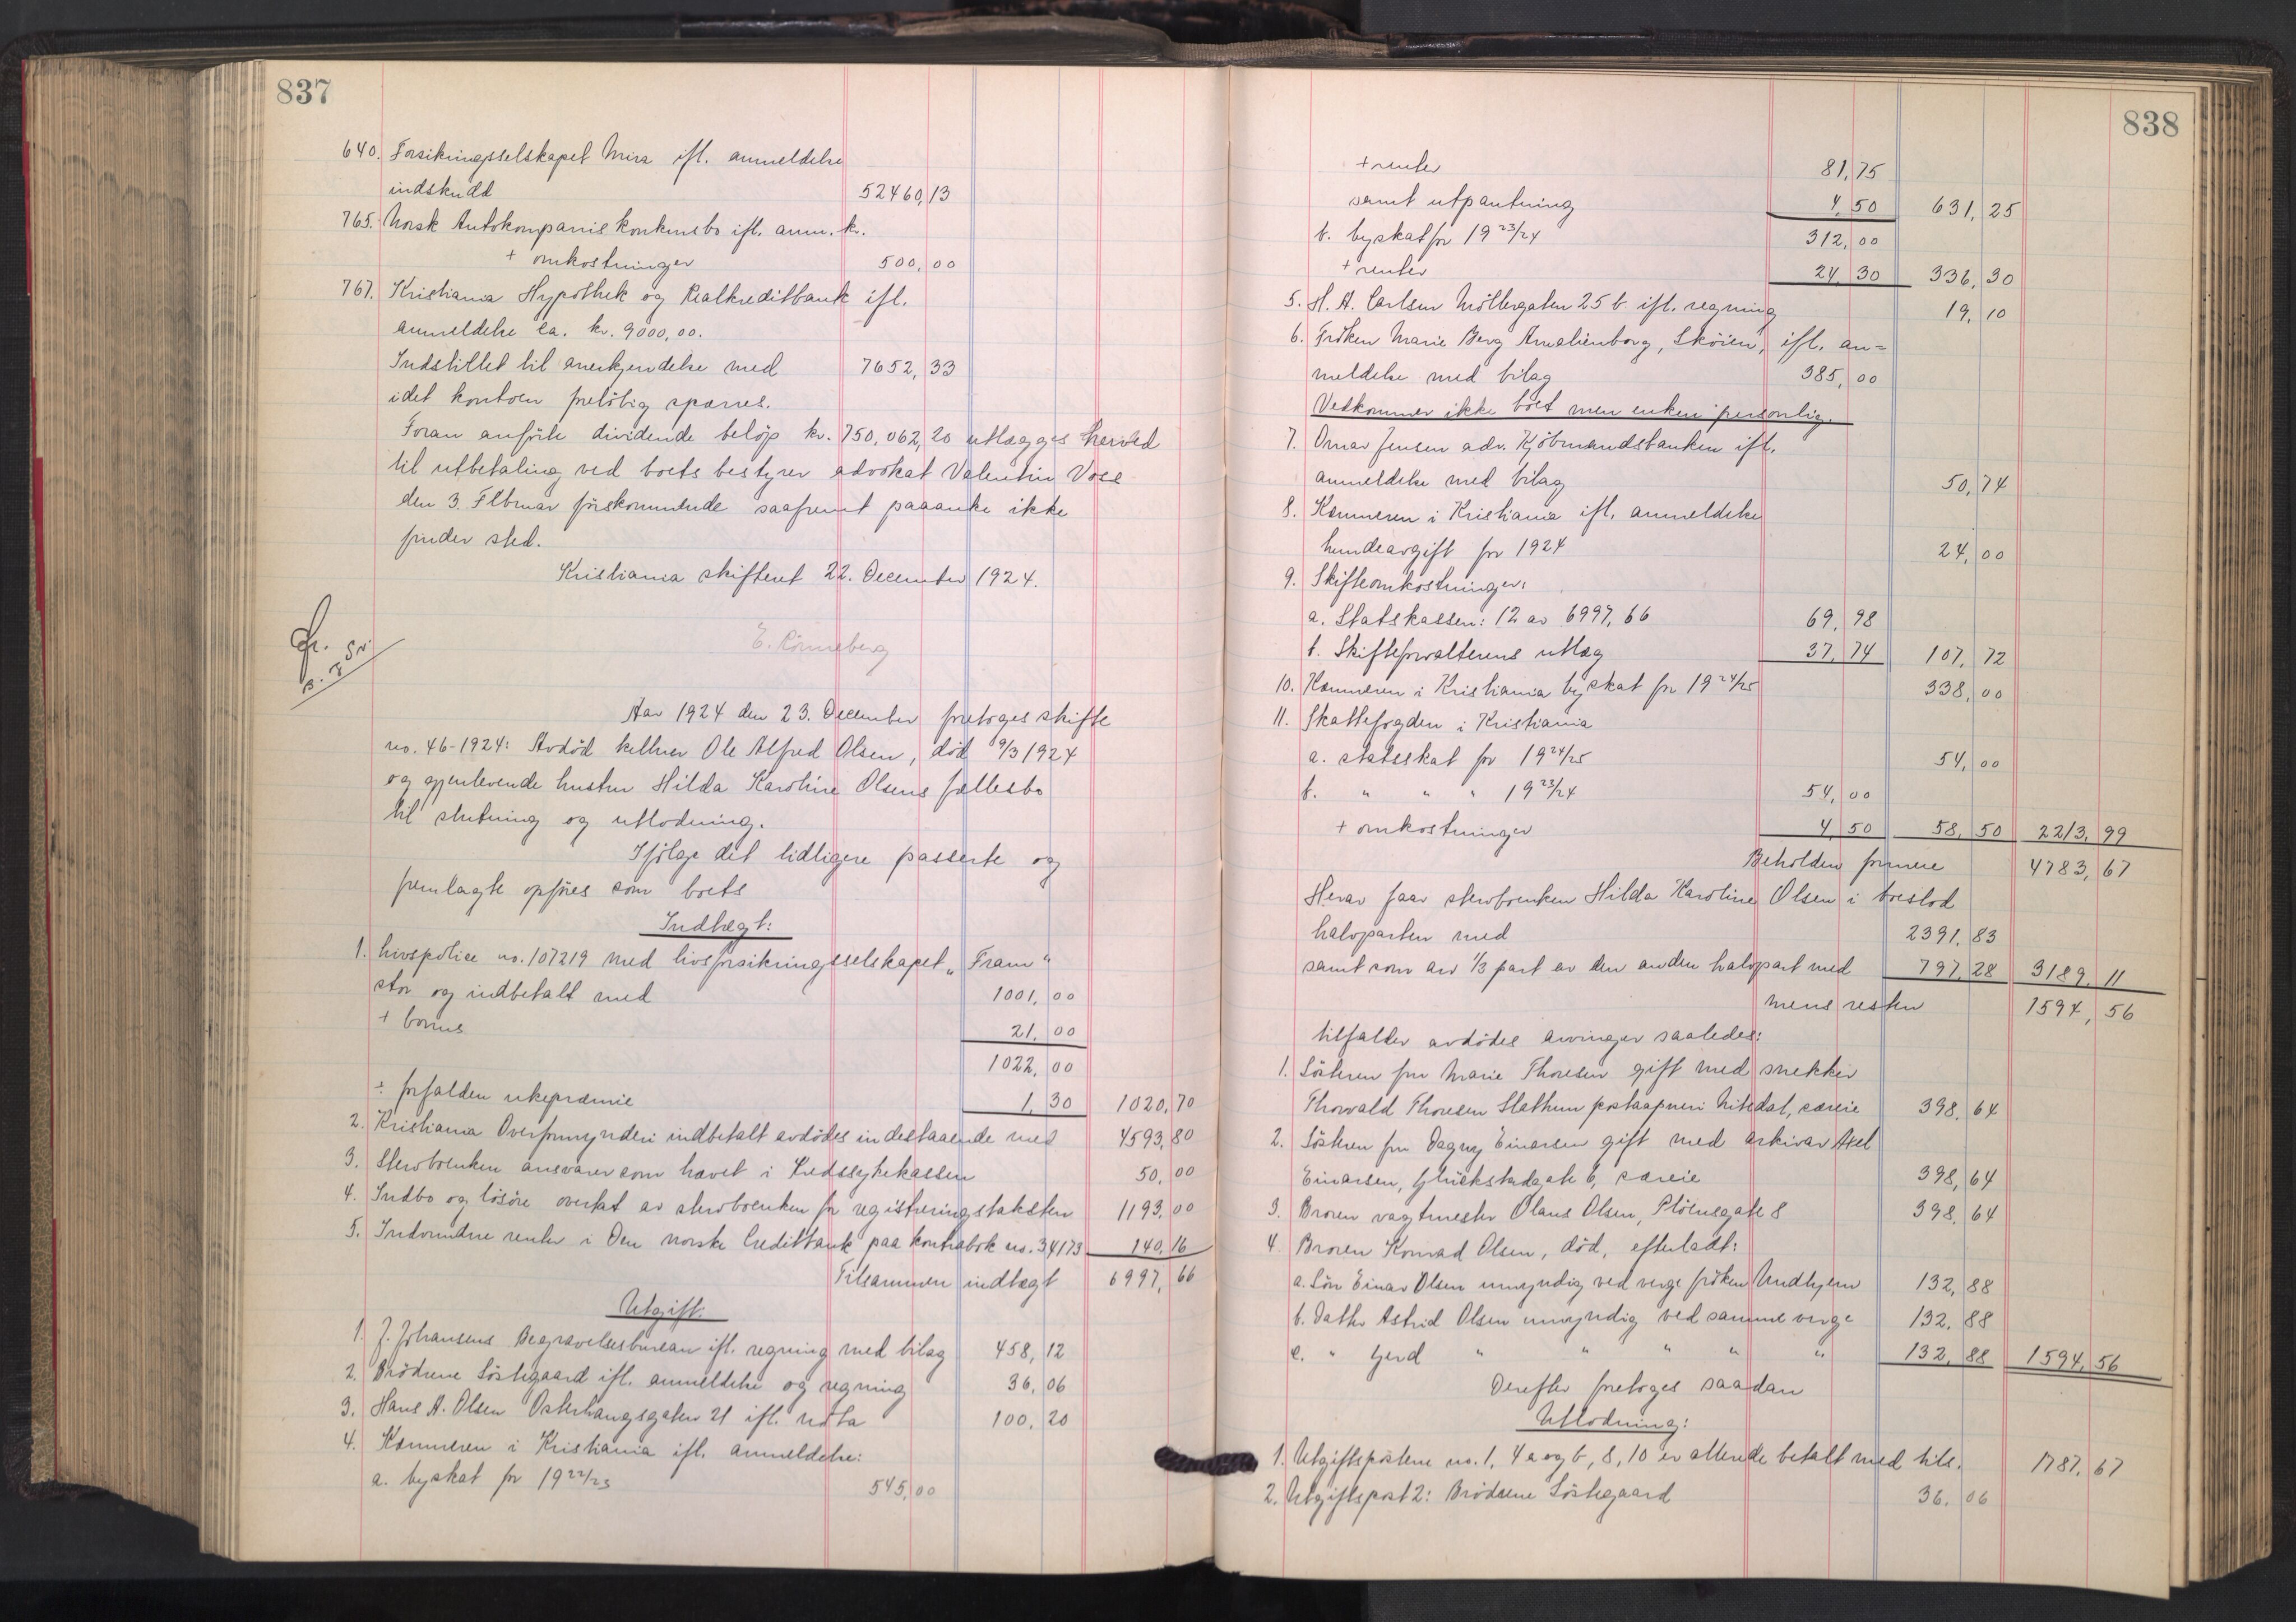 837
640. Forsikringsselskapet Mira ifl. anmeldelse
indskudd 52460,13
765. Norsk Autokompanis konkursbo ifl. anm. kr.
+ omkostninger 500,00
767. Kristiania Hypothek og Realkreditbank ifl.
anmeldelse ca. kr. 9000,00.
Indstillet til anerkjendelse med 7652,33
idet kontoen foreløbig sparres.
Foran anførte dividende beløp kr. 750,062,20 utlægges herved
til utbetaling ved boets bestyrer advokat Valentin Voss
den 3. Februar førskommende saafremt paaanke ikke
finder sted.
Kristiania skifteret 22. December 1924.
E. Rønneberg
Aar 1924 den 23. December foretoges skifte
no. 46-1924: Avdød kellner Ole Alfred Olsen, død 9/3 1924
og gjenlevende hustru Hilda Karoline Olsens fællesbo
til slutning og utlodning.
Ifølge det tidligere passerte og
fremlagte opføres som boets
Indtægt:
1. Livspolice no. 107219 med livsforsikringsselskapet „Fram"
stor og indbetalt med 1001,00
+ bonus 21,00
1022,00
÷ forfalden ukepræmie 1,30 1020,70
2. Kristiania Overformynderi indbetalt avdødes indestaaende med 4593,80
3. Stervboenken ansvarer som hævet i Kredssykekassen 50,00
4. Indbo og løsøre overtat av stervboenken for registreringstaksten 1193,00
5. Indvundne renter i Den norske Creditbank paa kontrabok no. 34173 140,16
Tilsammen indtægt 6997,66
Utgift.
1. J. Johansens Begravelsesbureau ifl. regning med bilag 458,12
2. Brödrene Söstegaard ifl. anmeldelse og regning 36,06
3. Hans A. Olsen Osterhausgaten 21 ifl. nota 100,20
4. Kæmneren i Kristiania ifl. anmeldelse:
a. byskat for 1922/23 545,00
838
+ renter 81,75
samt utpantning 4,50 631,25
b. byskat for 1923/24 312,00
+ renter 24,30 336,30
5. H. A. Carlsen Möllergaten 25 b ifl. regning 19,10
6. Fröken Marie Berg Amalienborg, Sköien, ifl. an=
meldelse med bilag 385,00
Vedkommer ikke boet men enken personlig.
7. Omar Jensen adr. Kjöbmandsbanken ifl.
anmeldelse med bilag 50,74
8. Kæmneren i Kristiania ifl. anmeldelse
hundeavgift for 1924 24,00
9. Skifteomkostninger:
a. Statskassen: 12 av 6997,66 69,98
b. Skifteforvalterens utlæg 37,74 107,72
10. Kæmneren i Kristiania byskat for 1924/25 338,00
11. Skattefogden i Kristiania
a. statsskat for 1924/25 54,00
b. " " " 1923/24 54,00
+ omkostninger 4,50 58,50 2213,99
Beholden formue 4783,67
Herav faar stervboenken Hilda Karoline Olsen i boeslod
halvparten med 2391,83
samt som arv 1/3 part av den anden halvpart med 797,28 3189,11
mens resten 1594,56
tilfalder avdödes arvinger saaledes:
1. Søsteren fru Marie Thoresen gift med snekker
Thorvald Thoresen Slattum postaapneri Nitedal, særeie 398,64
2. Søsteren fru Dagny Einarsen gift med arkivar Axel
Einarsen, Glückstadgate 6, særeie 398,64
3. Broren vagtmester Olaus Olsen, Plöensgate 8 398,64
4. Broren Konrad Olsen, död, efterladt:
a. Sön Einar Olsen umyndig ved verge fröken Undhjem 132,88
b. Datter Astrid Olsen umyndig ved samme verge 132,88
c. " Gerd " " " " " 132,88 1594,56
Derefter foretoges saadan
Utlodning:
1. Utgiftspostene no. 1, 4 a og b, 8, 10 er allerede betalt med tils. 1787,67
2. Utgiftspost 2: Brödrene Söstegaard 36,06